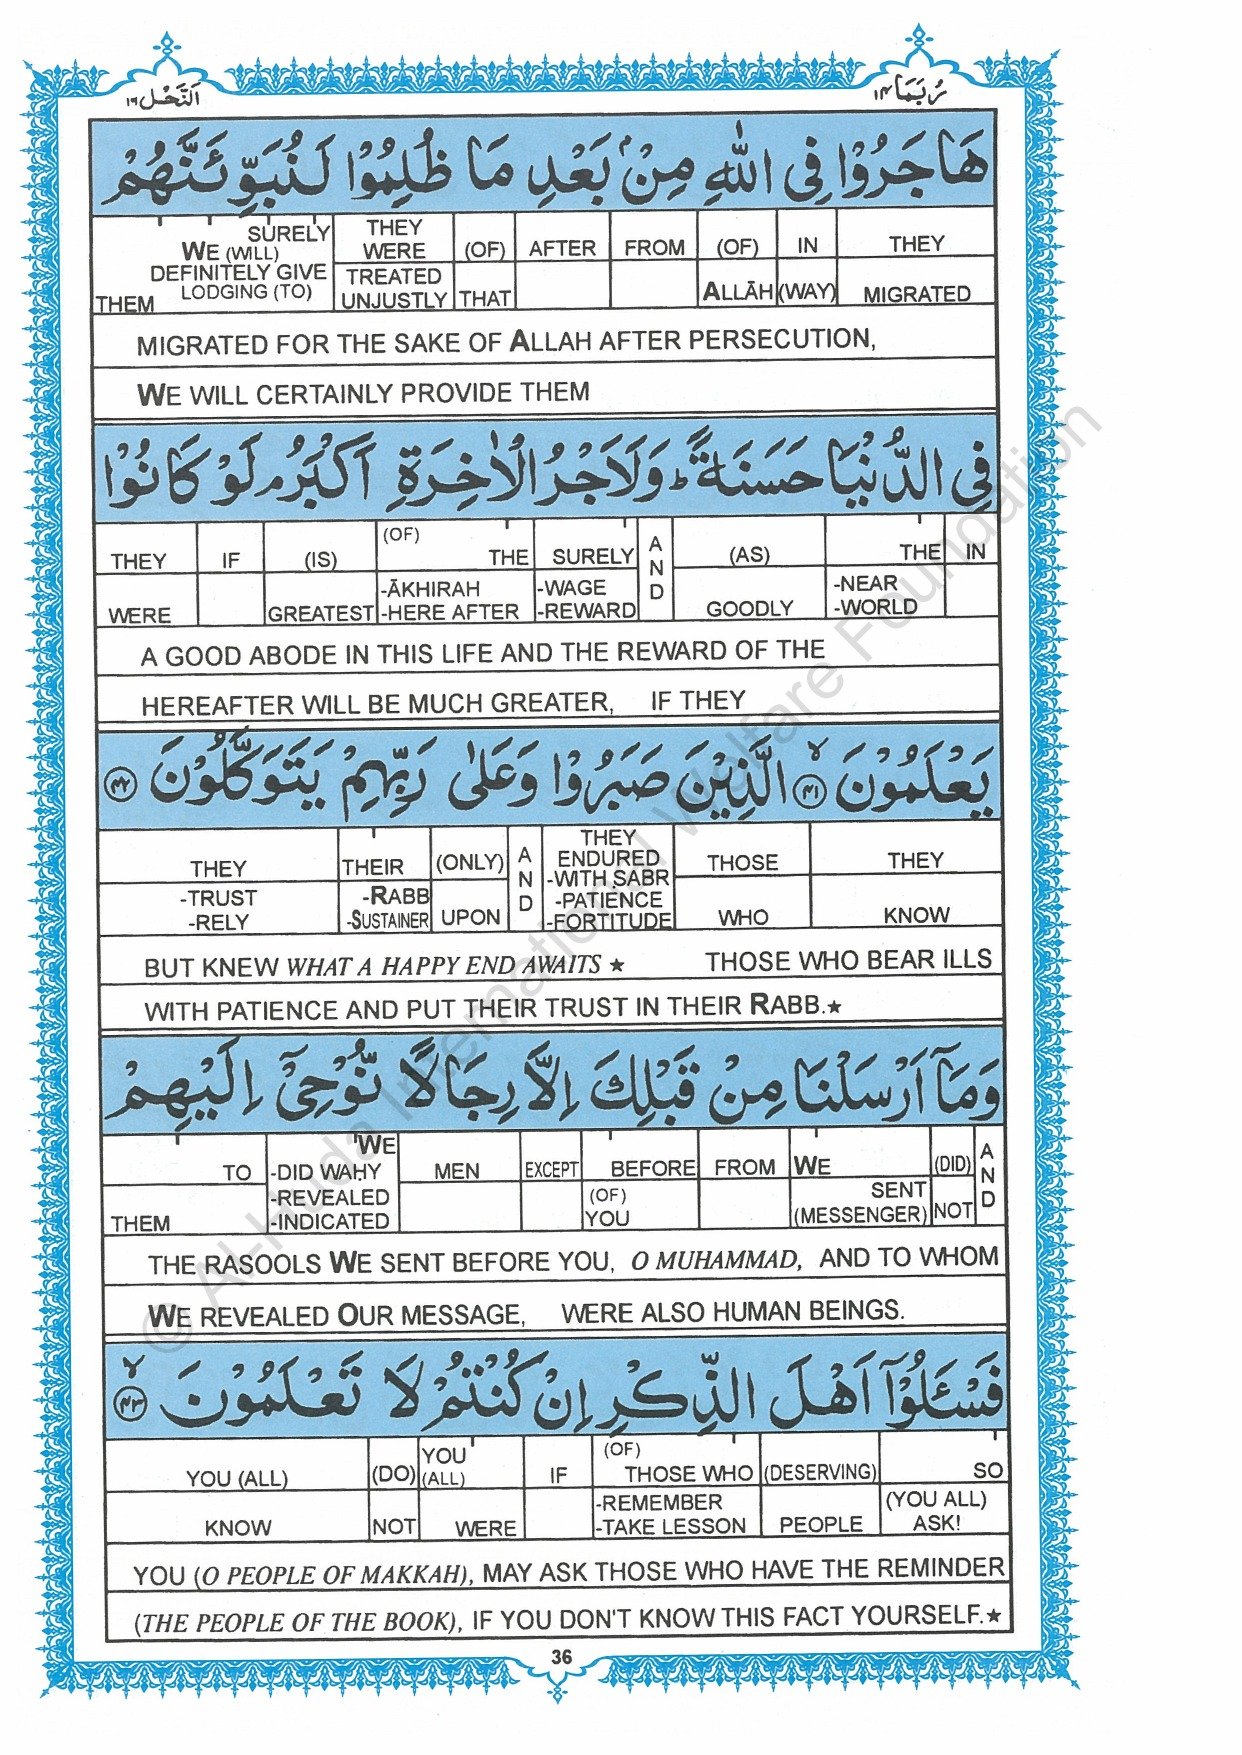 اَلنَّحْل ١٦ رُبَمَا ١٤
هَاجَرُوْا فِی اللّٰهِ مِنْۢ بَعْدِ مَا ظُلِمُوْا لَنُبَوِّئَنَّهُمْ
SURELY WE (WILL) DEFINITELY GIVE LODGING (TO) THEM | THEY WERE TREATED UNJUSTLY | (OF) THAT | AFTER | FROM | (OF) ALLĀH | IN (WAY) | THEY MIGRATED
MIGRATED FOR THE SAKE OF ALLAH AFTER PERSECUTION,
WE WILL CERTAINLY PROVIDE THEM
فِی الدُّنْیَا حَسَنَةً ؕ وَلَاَجْرُ الْاٰخِرَةِ اَکْبَرُ ۘ لَوْ کَانُوْا
THEY WERE | IF | (IS) GREATEST | (OF) THE -ĀKHIRAH -HERE AFTER | SURELY -WAGE -REWARD | AND | (AS) GOODLY | THE -NEAR -WORLD | IN
A GOOD ABODE IN THIS LIFE AND THE REWARD OF THE
HEREAFTER WILL BE MUCH GREATER, IF THEY
یَعْلَمُوْنَ ۙ﴿۴۱﴾ الَّذِیْنَ صَبَرُوْا وَعَلٰی رَبِّهِمْ یَتَوَکَّلُوْنَ ﴿۴۲﴾
THEY -TRUST -RELY | THEIR -RABB -SUSTAINER | (ONLY) UPON | AND | THEY ENDURED -WITH SABR -PATIENCE -FORTITUDE | THOSE WHO | THEY KNOW
BUT KNEW WHAT A HAPPY END AWAITS ★ THOSE WHO BEAR ILLS
WITH PATIENCE AND PUT THEIR TRUST IN THEIR RABB.★
وَمَاۤ اَرْسَلْنَا مِنْ قَبْلِكَ اِلَّا رِجَالًا نُّوْحِیْۤ اِلَیْهِمْ
TO THEM | WE -DID WAḤY -REVEALED -INDICATED | MEN | EXCEPT | BEFORE (OF) YOU | FROM | WE SENT (MESSENGER) | (DID) NOT | AND
THE RASOOLS WE SENT BEFORE YOU, O MUHAMMAD, AND TO WHOM
WE REVEALED OUR MESSAGE, WERE ALSO HUMAN BEINGS.
فَسْـَٔلُوْۤا اَهْلَ الذِّکْرِ اِنْ کُنْتُمْ لَا تَعْلَمُوْنَ ۙ﴿۴۳﴾
YOU (ALL) KNOW | (DO) NOT | YOU (ALL) WERE | IF | (OF) THOSE WHO -REMEMBER -TAKE LESSON | (DESERVING) PEOPLE | SO (YOU ALL) ASK!
YOU (O PEOPLE OF MAKKAH), MAY ASK THOSE WHO HAVE THE REMINDER
(THE PEOPLE OF THE BOOK), IF YOU DON'T KNOW THIS FACT YOURSELF.★
36
© Al-Huda International Welfare Foundation